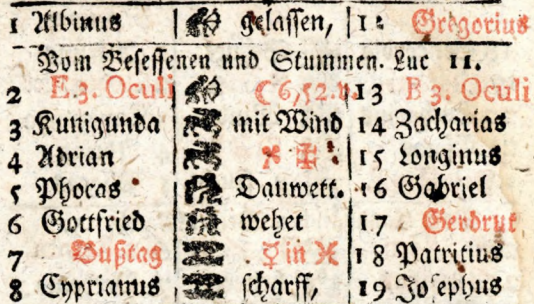 1 Albinus gelassen, 12 Gregorius
Vom Besessenen und Stummen. Luc 11.
2 E.3. Oculi ☾6,52.v. 13 B 3. Oculi
3 Kunigunda mit Wind 14 Zacharias
4 Adrian 15 Longinus
5 Phocas Dauwett. 16 Gabriel
6 Gottfried wehet 17 Gerdrut
7 Bußtag ☿ in ♓ 18 Patritius
8 Cyprianus scharff, 19 Josephus